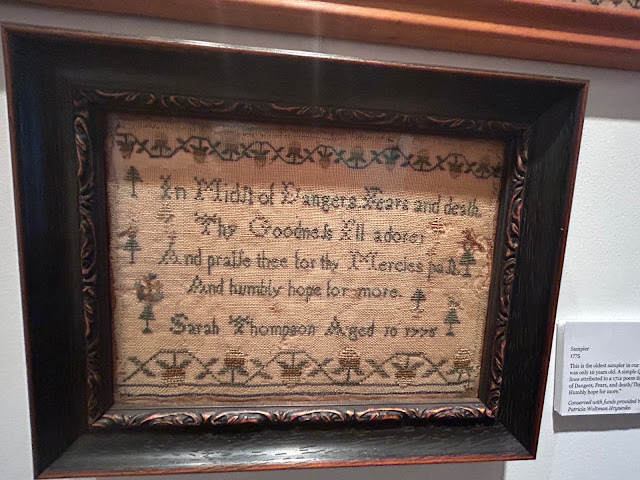 In Midst of Dangers, Fears and death,
Thy Goodness I'll adore:
And praise thee for thy Mercies past,
And humbly hope for more.
Sarah Thompson Aged 10 1775
Sampler
1775
This is the oldest sampler in our
was only 10 years old. A simple
lines attributed to a 1712 poem
of Dangers, Fears, and death/
Humbly hope for more."
Conserved with funds provided
Patricia Waltman Hrynenko